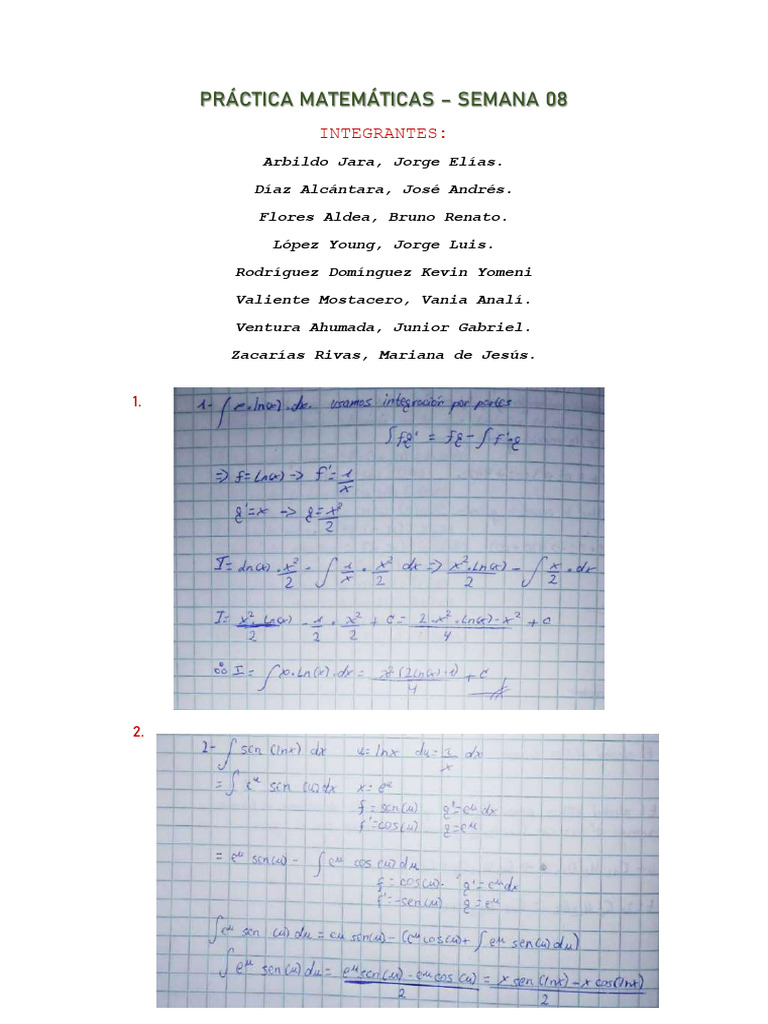 PRÁCTICA MATEMÁTICAS – SEMANA 08
INTEGRANTES:
Arbildo Jara, Jorge Elías.
Díaz Alcántara, José Andrés.
Flores Aldea, Bruno Renato.
López Young, Jorge Luis.
Rodríguez Domínguez Kevin Yomeni
Valiente Mostacero, Vania Analí.
Ventura Ahumada, Junior Gabriel.
Zacarías Rivas, Mariana de Jesús.
1.
1- ∫ x·ln(x)·dx. usamos integración por partes
∫fg' = fg - ∫f'·g
=> f=Ln(x) -> f'=1/x
g'=x -> g=x²/2
I= Ln(x)·x²/2 - ∫ 1/x · x²/2 dx => x²·Ln(x)/2 - ∫ x/2 · dx
I= x²·Ln(x)/2 - 1/2 · x²/2 + C = 2·x²·Ln(x)-x²/4 + C
∴ I= ∫x·Ln(x)·dx = x²(2Ln(x)-1)/4 + C
2.
2- ∫ sen (lnx) dx u= lnx du= 1/x dx
= ∫ eᵘ sen (u)dx x= eᵘ
f = sen(u) g'=eᵘ dx
f'=cos(u) g=eᵘ
= eᵘ sen(u) - ∫ eᵘ cos (u)du
f = cos(u). g'=eᵘdx
f'=-sen(u) g=eᵘ
∫eᵘ sen (u)du = eu sen(u) - (eᵘcos(u)+ ∫ eᵘ sen(u)du)
∫ eᵘ sen(u)du = eᵘsen(u) - eᵘ cos (u)/2 = x sen (lnx) - x cos(lnx)/2